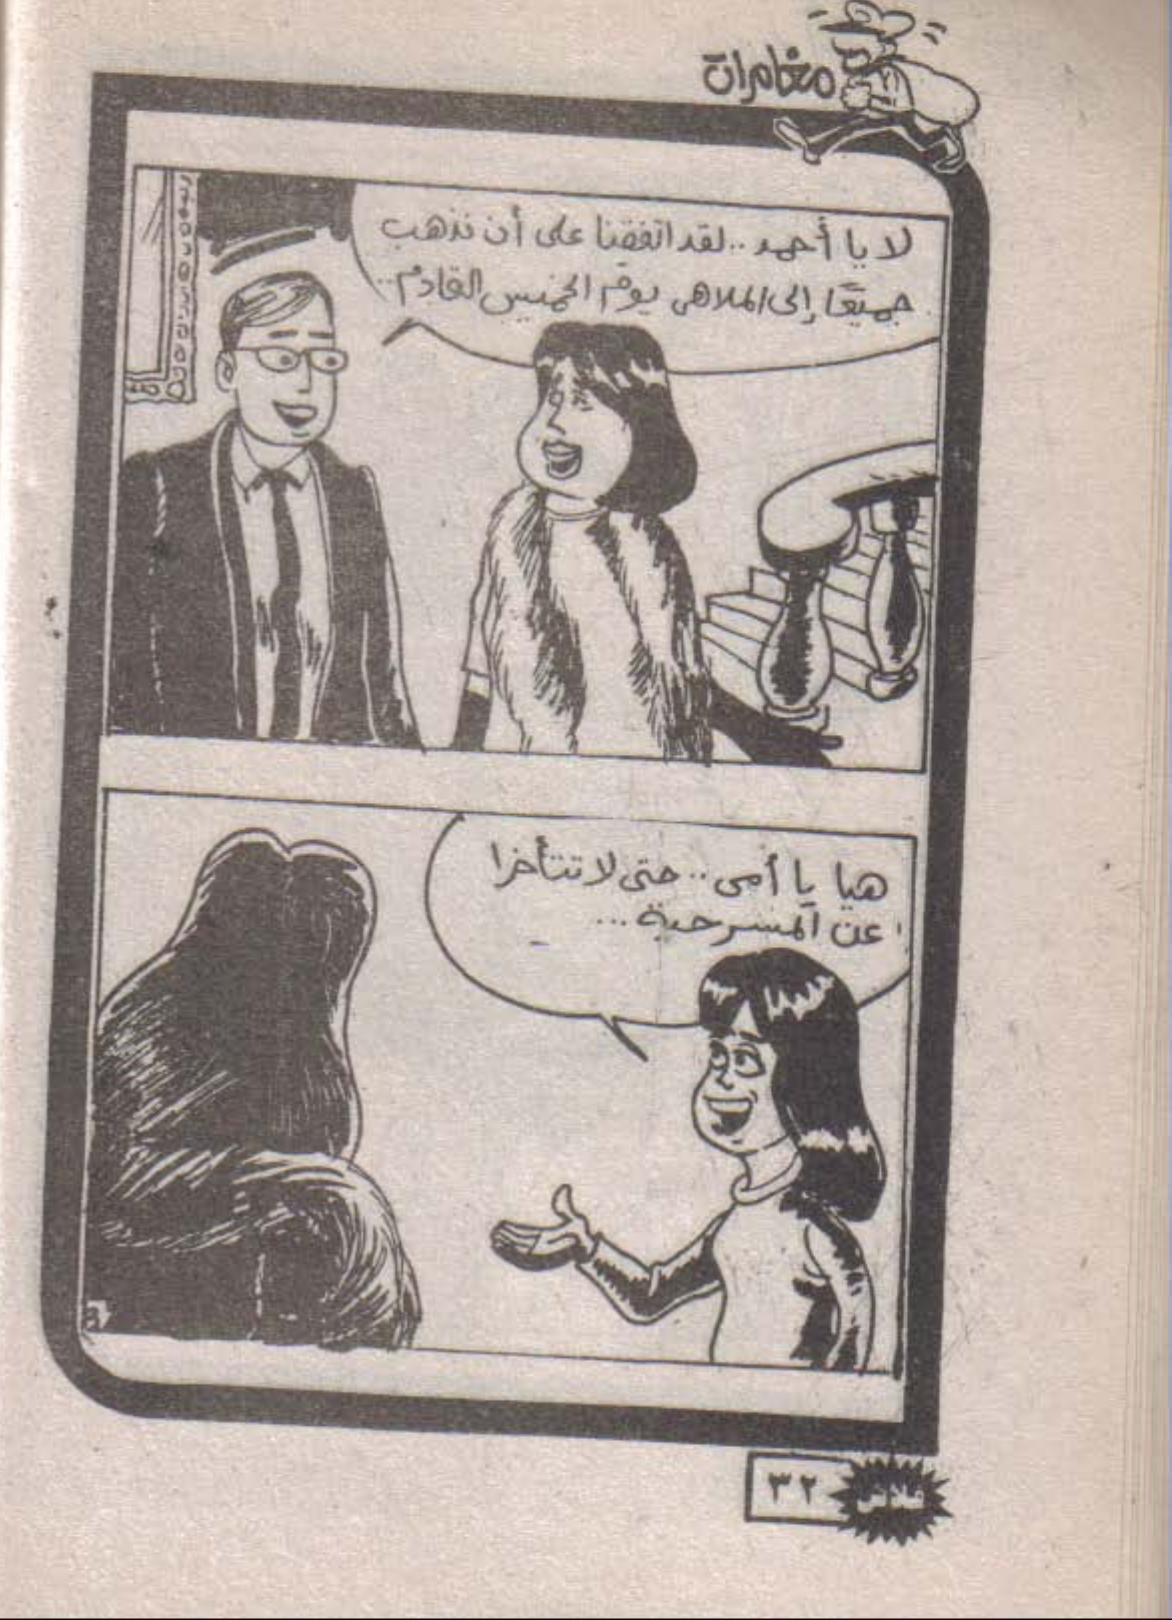 مغامرات
لا يا أحمد .. لقد اتفقنا على أن نذهب
جميعًا إلى الملاهى يوم الخميس القادم ..
هيا يا أمى .. حتى لا تتأخرا
عن المسرحية ...
٣٢